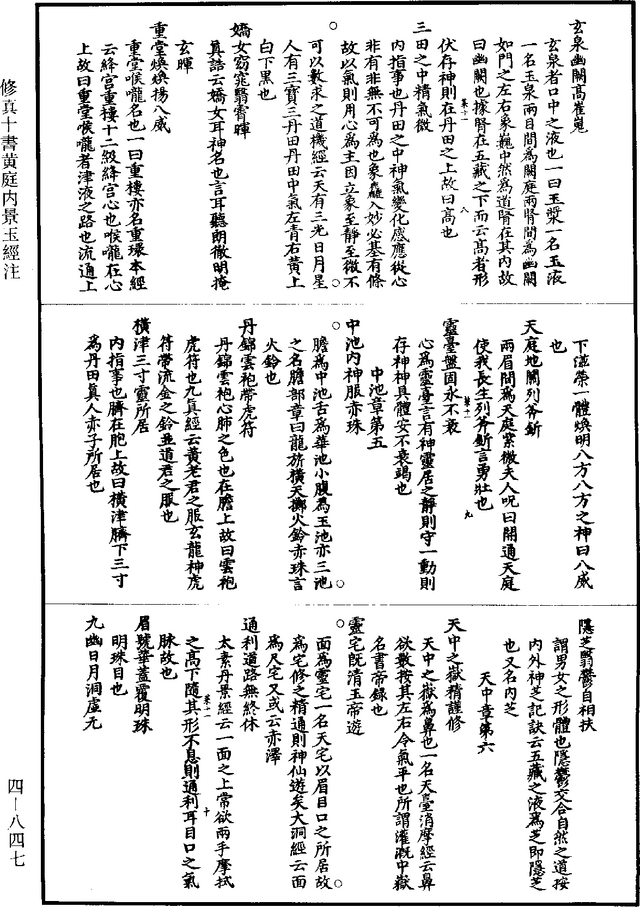 修真十書黄庭内景玉經注
四－八四七
玄泉幽闕高崔嵬
玄泉者口中之液也一曰玉漿一名玉液
一名玉泉兩目間爲闕庭兩腎間爲幽闕
如門之左右象巍中然爲道腎在其内故
曰幽闕也據腎在五藏之下而云高者形
伏存神則在丹田之上故曰高也
三田之中精氣微
内指事也丹田之中神氣變化感應從心
非有非無不可爲也象麤入妙必基有條
故以氣則用心爲主因立象至靜至微不
可以數求之道機經云天有三光日月星
人有三寶三丹田丹田中氣左青右黄上
白下黒也
嬌女窈窕翳霄暉
真誥云嬌女耳神名也言耳聽朗徹明掩
玄暉
重堂煥煥揚八威
重堂喉嚨名也一曰重樓亦名重環本經
云絳宫重樓十二級絳宫心也喉嚨在心
上故曰重堂喉嚨者津液之路也流通上
下滋榮一體煥明八方八方之神曰八威
也
天庭地關列斧斤
兩眉間爲天庭紫微夫人呪曰開通天庭
使我長生列斧斤言勇壯也
靈臺盤固永不衰
心爲靈臺言有神靈居之靜則守一動則
存神神具體安不衰竭也
中池章第五
中池内神服赤珠
膽爲中池舌爲華池小腹爲玉池亦三池
之名膽部章曰龍旂横天擲火鈴赤珠言
火鈴也
丹錦雲袍帶虎符
丹錦雲袍心肺之色也在膽上故曰雲袍
虎符也九真經云黄老君之服玄龍神虎
符帶流金之鈴並道君之服也
横津三寸靈所居
内指事也臍在胞上故曰横津臍下三寸
爲丹田真人赤子所居也
隱芝翳鬱自相扶
謂男女之形體也隱鬱交合自然之道按
内外神芝記訣云五藏之液爲芝即隱芝
也又名内芝
天中章第六
天中之嶽精謹修
天中之嶽爲鼻也一名天臺消摩經云鼻
欲數按其左右令氣平也所謂灌溉中嶽
名書帝錄也
靈宅既清玉帝遊
面爲靈宅一名天宅以眉目口之所居故
爲宅修之精通則神仙遊矣大洞經云面
爲尺宅又或云赤澤
通利道路無終休
太素丹景經云一面之上常欲兩手摩拭
之高下隨其形不息則通利耳目口之氣
脉故也
眉號華蓋覆明珠
明珠目也
九幽日月洞虚无